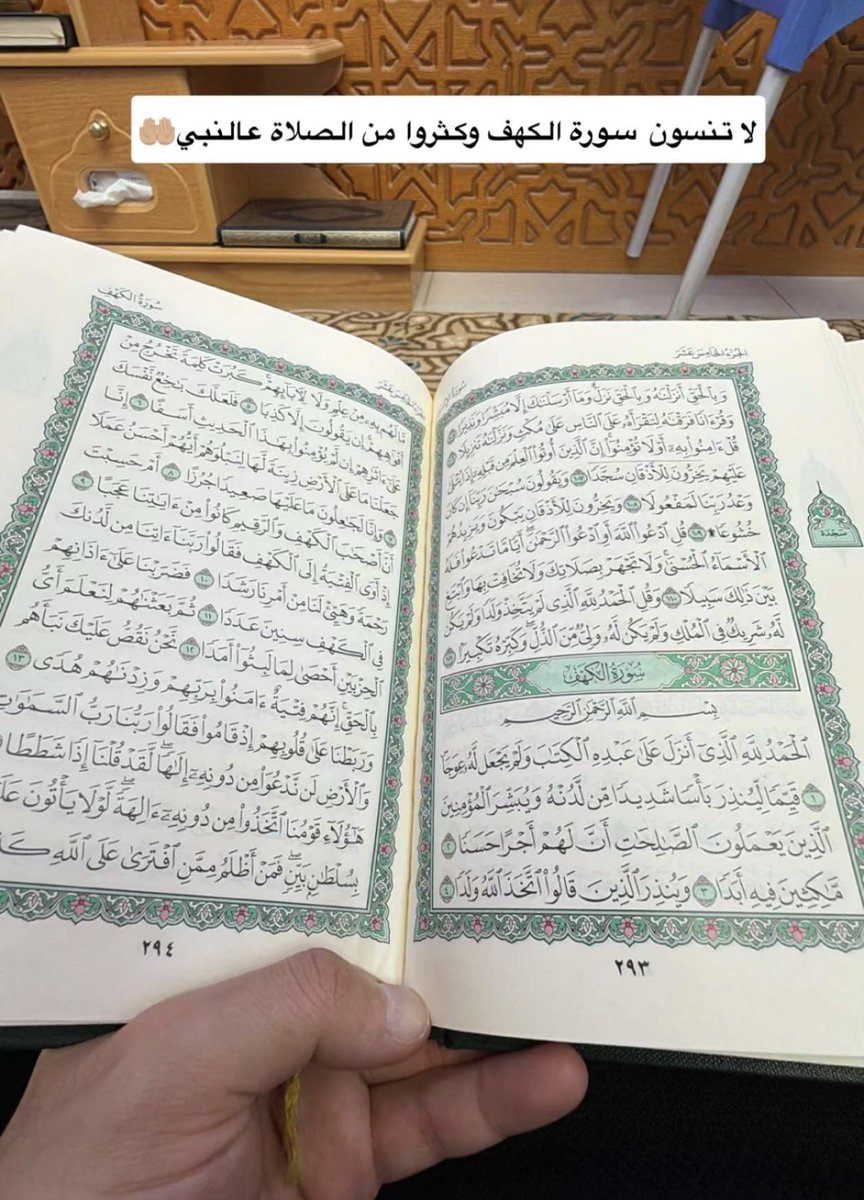 لا تنسون سورة الكهف وكثروا من الصلاة عالنبي🤲🏼
الجزء الخامس عشر
وَبِالْحَقِّ أَنزَلْنَاهُ وَبِالْحَقِّ نَزَلَ وَمَا أَرْسَلْنَاكَ إِلَّا مُبَشِّرًا وَنَذِيرًا ١٠٥
وَقُرْءَانًا فَرَقْنَاهُ لِتَقْرَأَهُ عَلَى النَّاسِ عَلَىٰ مُكْثٍ وَنَزَّلْنَاهُ تَنزِيلًا ١٠٦
قُلْ ءَامِنُوا بِهِ أَوْ لَا تُؤْمِنُوا إِنَّ الَّذِينَ أُوتُوا الْعِلْمَ مِن قَبْلِهِ إِذَا يُتْلَىٰ
عَلَيْهِمْ يَخِرُّونَ لِلْأَذْقَانِ سُجَّدًا ١٠٧ وَيَقُولُونَ سُبْحَٰنَ رَبِّنَا إِن كَانَ
وَعْدُ رَبِّنَا لَمَفْعُولًا ١٠٨ وَيَخِرُّونَ لِلْأَذْقَانِ يَبْكُونَ وَيَزِيدُهُمْ
خُشُوعًا ۩ ١٠٩ قُلِ ادْعُوا اللَّهَ أَوِ ادْعُوا الرَّحْمَٰنَ أَيًّا مَّا تَدْعُوا فَلَهُ
الْأَسْمَاءُ الْحُسْنَىٰ وَلَا تَجْهَرْ بِصَلَاتِكَ وَلَا تُخَافِتْ بِهَا وَابْتَغِ
بَيْنَ ذَٰلِكَ سَبِيلًا ١١٠ وَقُلِ الْحَمْدُ لِلَّهِ الَّذِي لَمْ يَتَّخِذْ وَلَدًا وَلَمْ يَكُن
لَّهُ شَرِيكٌ فِي الْمُلْكِ وَلَمْ يَكُن لَّهُ وَلِيٌّ مِّنَ الذُّلِّ وَكَبِّرْهُ تَكْبِيرًا ١١١
سجدة
سُورَةُ الكَهْفِ
بِسْمِ اللَّهِ الرَّحْمَٰنِ الرَّحِيمِ
الْحَمْدُ لِلَّهِ الَّذِي أَنزَلَ عَلَىٰ عَبْدِهِ الْكِتَٰبَ وَلَمْ يَجْعَل لَّهُ عِوَجًا
١ قَيِّمًا لِّيُنذِرَ بَأْسًا شَدِيدًا مِّن لَّدُنْهُ وَيُبَشِّرَ الْمُؤْمِنِينَ
الَّذِينَ يَعْمَلُونَ الصَّٰلِحَٰتِ أَنَّ لَهُمْ أَجْرًا حَسَنًا ٢
مَّٰكِثِينَ فِيهِ أَبَدًا ٣ وَيُنذِرَ الَّذِينَ قَالُوا اتَّخَذَ اللَّهُ وَلَدًا ٤
٢٩٣
سُورَةُ الكَهْفِ
مَّا لَهُم بِهِ مِنْ عِلْمٍ وَلَا لِءَابَائِهِمْ كَبُرَتْ كَلِمَةً تَخْرُجُ مِنْ
أَفْوَٰهِهِمْ إِن يَقُولُونَ إِلَّا كَذِبًا ٥ فَلَعَلَّكَ بَٰخِعٌ نَّفْسَكَ
عَلَىٰ ءَاثَٰرِهِمْ إِن لَّمْ يُؤْمِنُوا بِهَٰذَا الْحَدِيثِ أَسَفًا ٦ إِنَّا
جَعَلْنَا مَا عَلَى الْأَرْضِ زِينَةً لَّهَا لِنَبْلُوَهُمْ أَيُّهُمْ أَحْسَنُ عَمَلًا
٧ وَإِنَّا لَجَٰعِلُونَ مَا عَلَيْهَا صَعِيدًا جُرُزًا ٨ أَمْ حَسِبْتَ
أَنَّ أَصْحَٰبَ الْكَهْفِ وَالرَّقِيمِ كَانُوا مِنْ ءَايَٰتِنَا عَجَبًا ٩
إِذْ أَوَى الْفِتْيَةُ إِلَى الْكَهْفِ فَقَالُوا رَبَّنَا ءَاتِنَا مِن لَّدُنكَ
رَحْمَةً وَهَيِّئْ لَنَا مِنْ أَمْرِنَا رَشَدًا ١٠ فَضَرَبْنَا عَلَىٰ ءَاذَانِهِمْ
فِي الْكَهْفِ سِنِينَ عَدَدًا ١١ ثُمَّ بَعَثْنَٰهُمْ لِنَعْلَمَ أَيُّ
الْحِزْبَيْنِ أَحْصَىٰ لِمَا لَبِثُوا أَمَدًا ١٢ نَّحْنُ نَقُصُّ عَلَيْكَ نَبَأَهُم
بِالْحَقِّ إِنَّهُمْ فِتْيَةٌ ءَامَنُوا بِرَبِّهِمْ وَزِدْنَٰهُمْ هُدًى ١٣
وَرَبَطْنَا عَلَىٰ قُلُوبِهِمْ إِذْ قَامُوا فَقَالُوا رَبُّنَا رَبُّ السَّمَٰوَٰتِ
وَالْأَرْضِ لَن نَّدْعُوَا مِن دُونِهِ إِلَٰهًا لَّقَدْ قُلْنَا إِذًا شَطَطًا
هَٰؤُلَاءِ قَوْمُنَا اتَّخَذُوا مِن دُونِهِ ءَالِهَةً لَّوْلَا يَأْتُونَ
بِسُلْطَٰنٍ بَيِّنٍ فَمَنْ أَظْلَمُ مِمَّنِ افْتَرَىٰ عَلَى اللَّهِ
٢٩٤